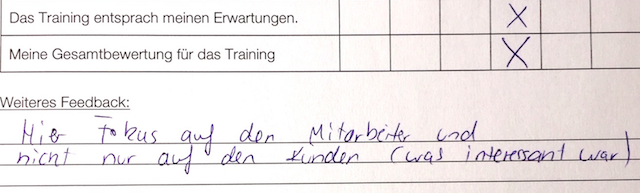 Das Training entsprach meinen Erwartungen. X
Meine Gesamtbewertung für das Training X
Weiteres Feedback:
Hier Fokus auf den Mitarbeiter und
nicht nur auf den Kunden (was interessant war)